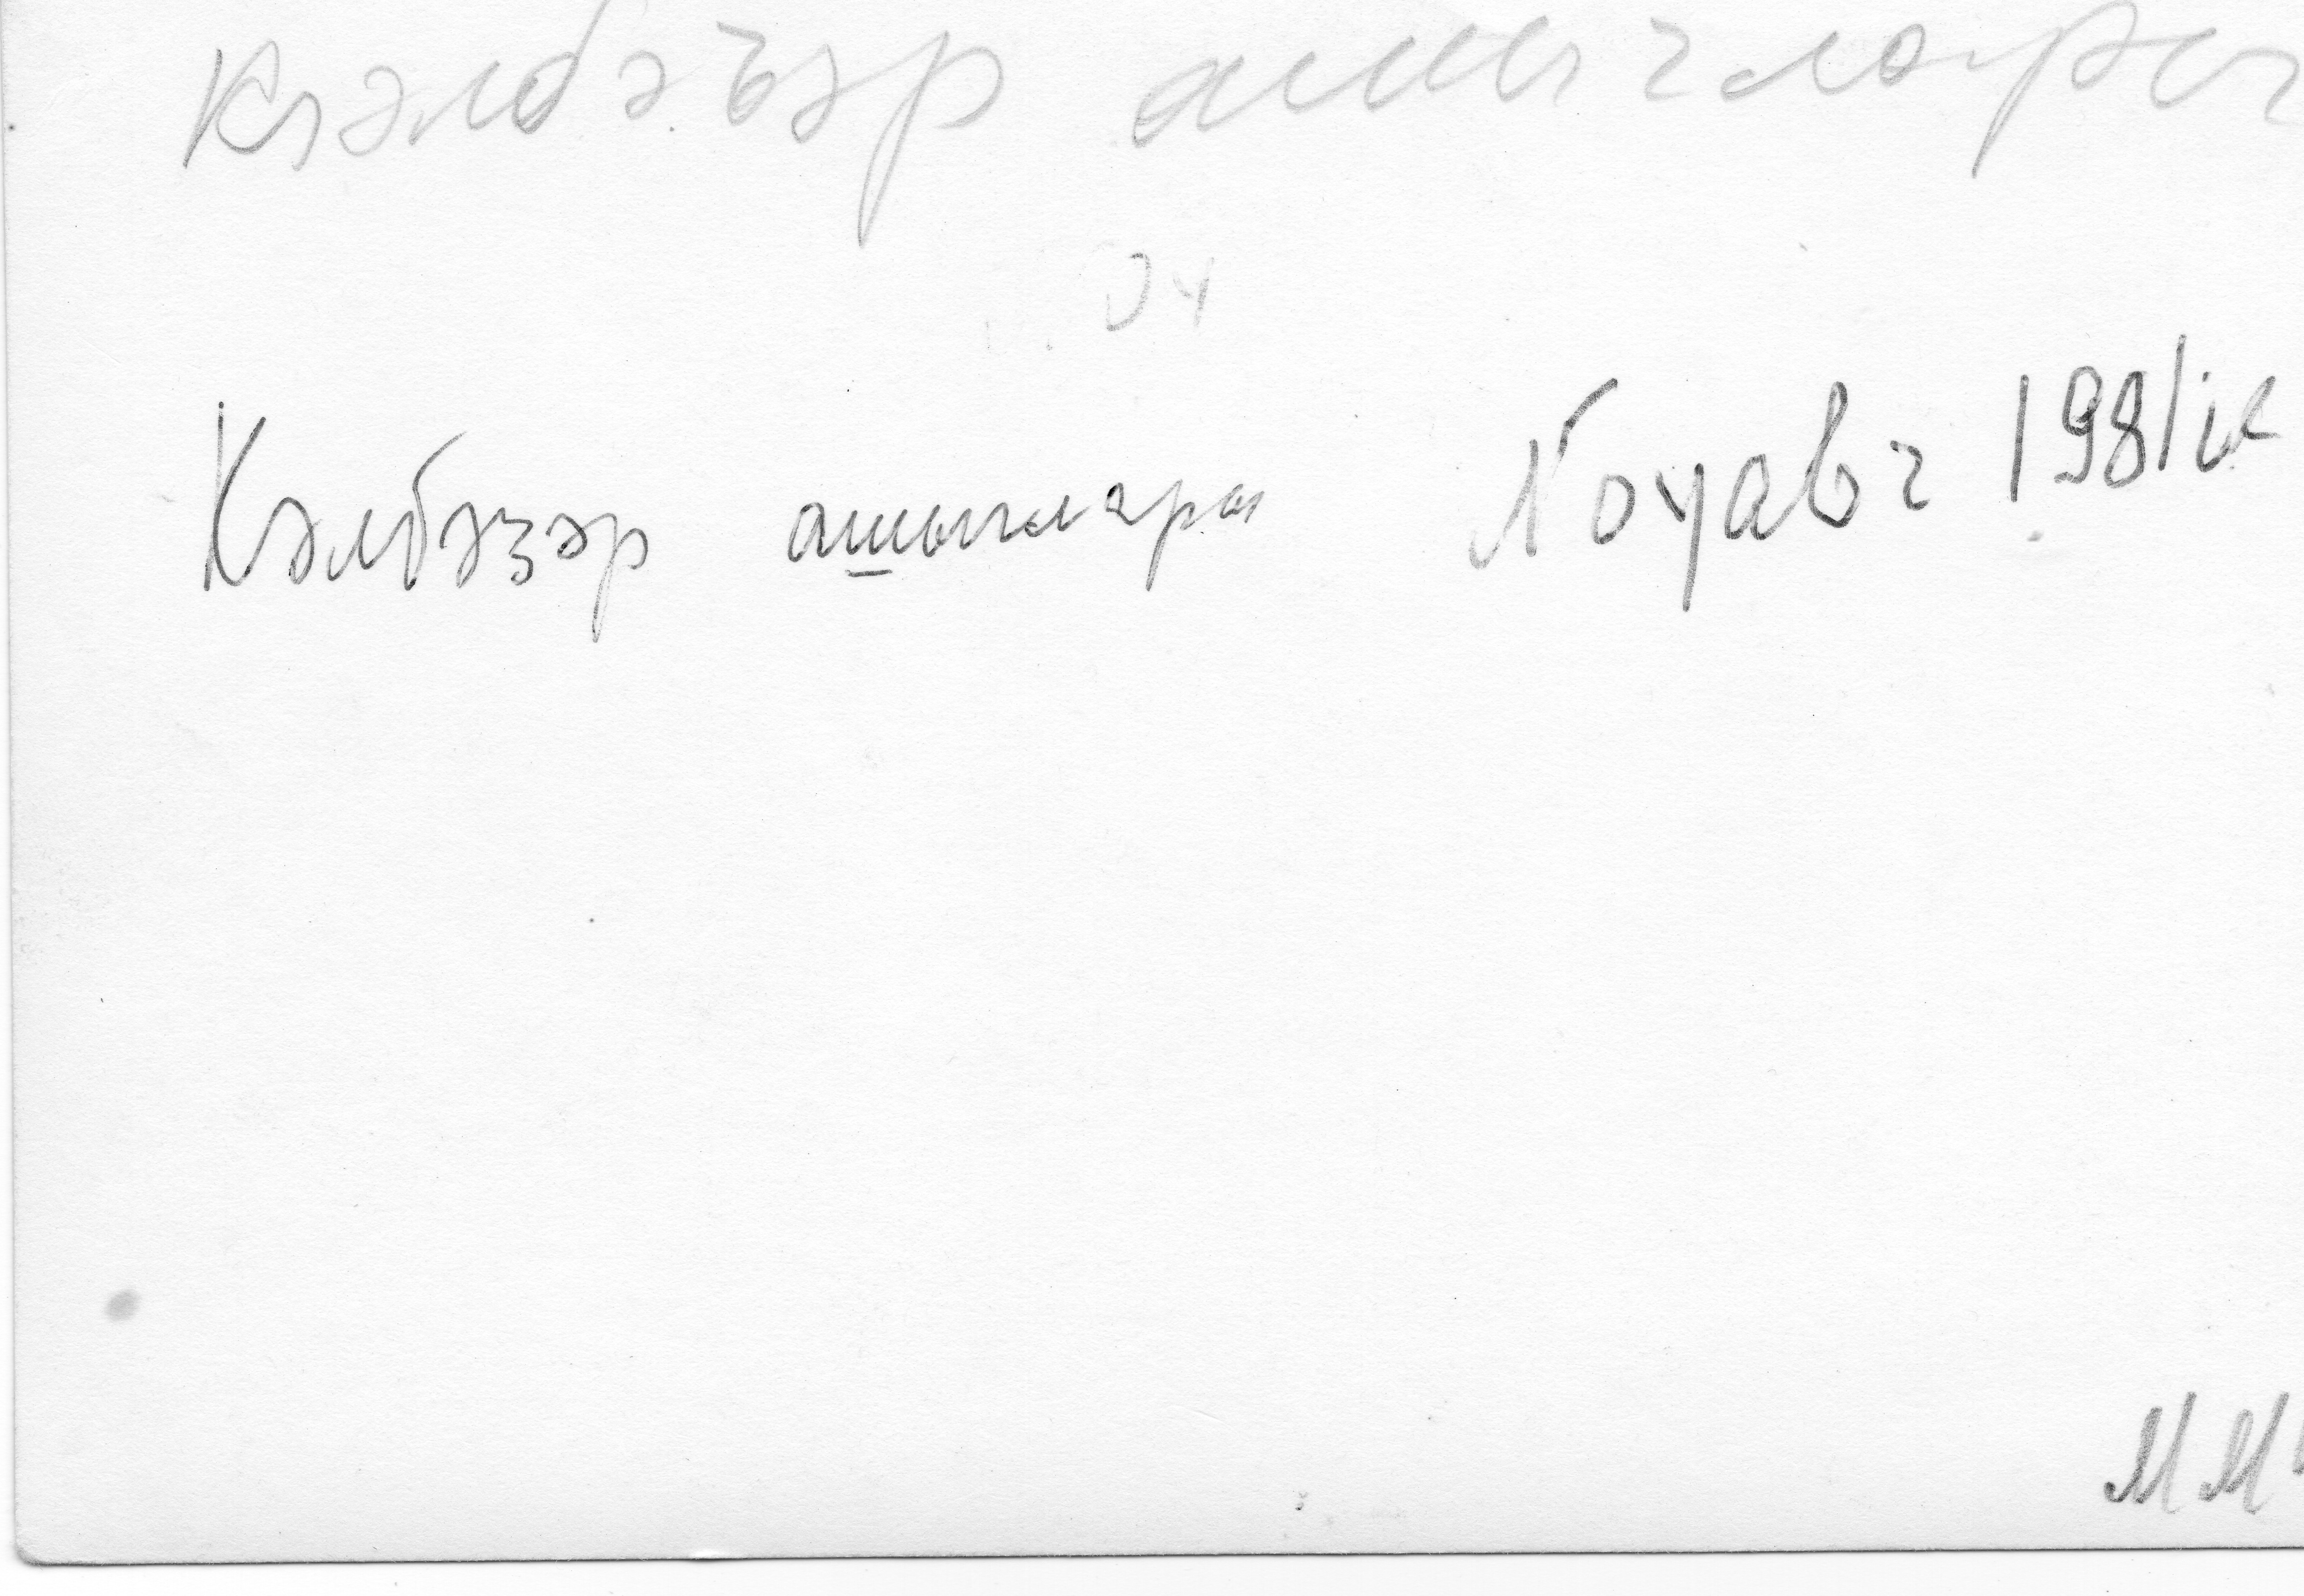 Кәлбәҹәр ашыглары
04
Кәлбәҹәр ашыглары Лоуавг 1981ик
ММ